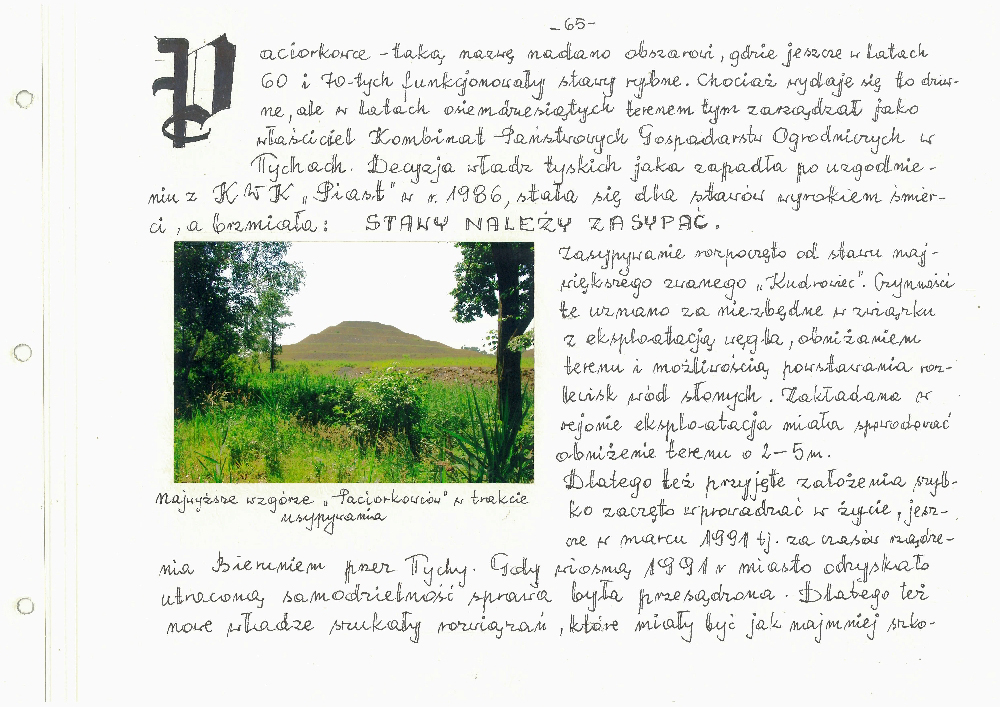 -65-
Paciorkowce - taką nazwę nadano obszarowi, gdzie jeszcze w latach
60 i 70-tych funkcjonowały stawy rybne. Chociaż wydaje się to dziw-
ne, ale w latach osiemdziesiątych terenem tym zarządzał jako
właściciel Kombinat Państwowych Gospodarstw Ogrodniczych w
Tychach. Decyzja władz tyskich jaka zapadła po uzgodnie-
niu z KWK „Piast" w r. 1986, stała się dla stawów wyrokiem śmier-
ci, a brzmiała: STAWY NALEŻY ZASYPAĆ.
Zasypywanie rozpoczęto od stawu naj-
większego zwanego „Kudrowiec". Czynności
te uznano za niezbędne w związku
z eksploatacją węgla, obniżaniem
terenu i możliwością powstawania roz-
lewisk wód słonych. Zakładana w
rejonie eksploatacja miała spowodować
obniżenie terenu o 2-5 m.
Dlatego też przyjęte założenia szyb-
ko zaczęto wprowadzać w życie, jesz-
cze w marcu 1991 tj. za czasów rządze-
Najwyższe wzgórze „Paciorkowców" w trakcie
usypywania
nia Bieruniem przez Tychy. Gdy wiosną 1991 r miasto odzyskało
utraconą samodzielność sprawa była przesądzona. Dlatego też
nowe władze szukały rozwiązań, które miały być jak najmniej szko-